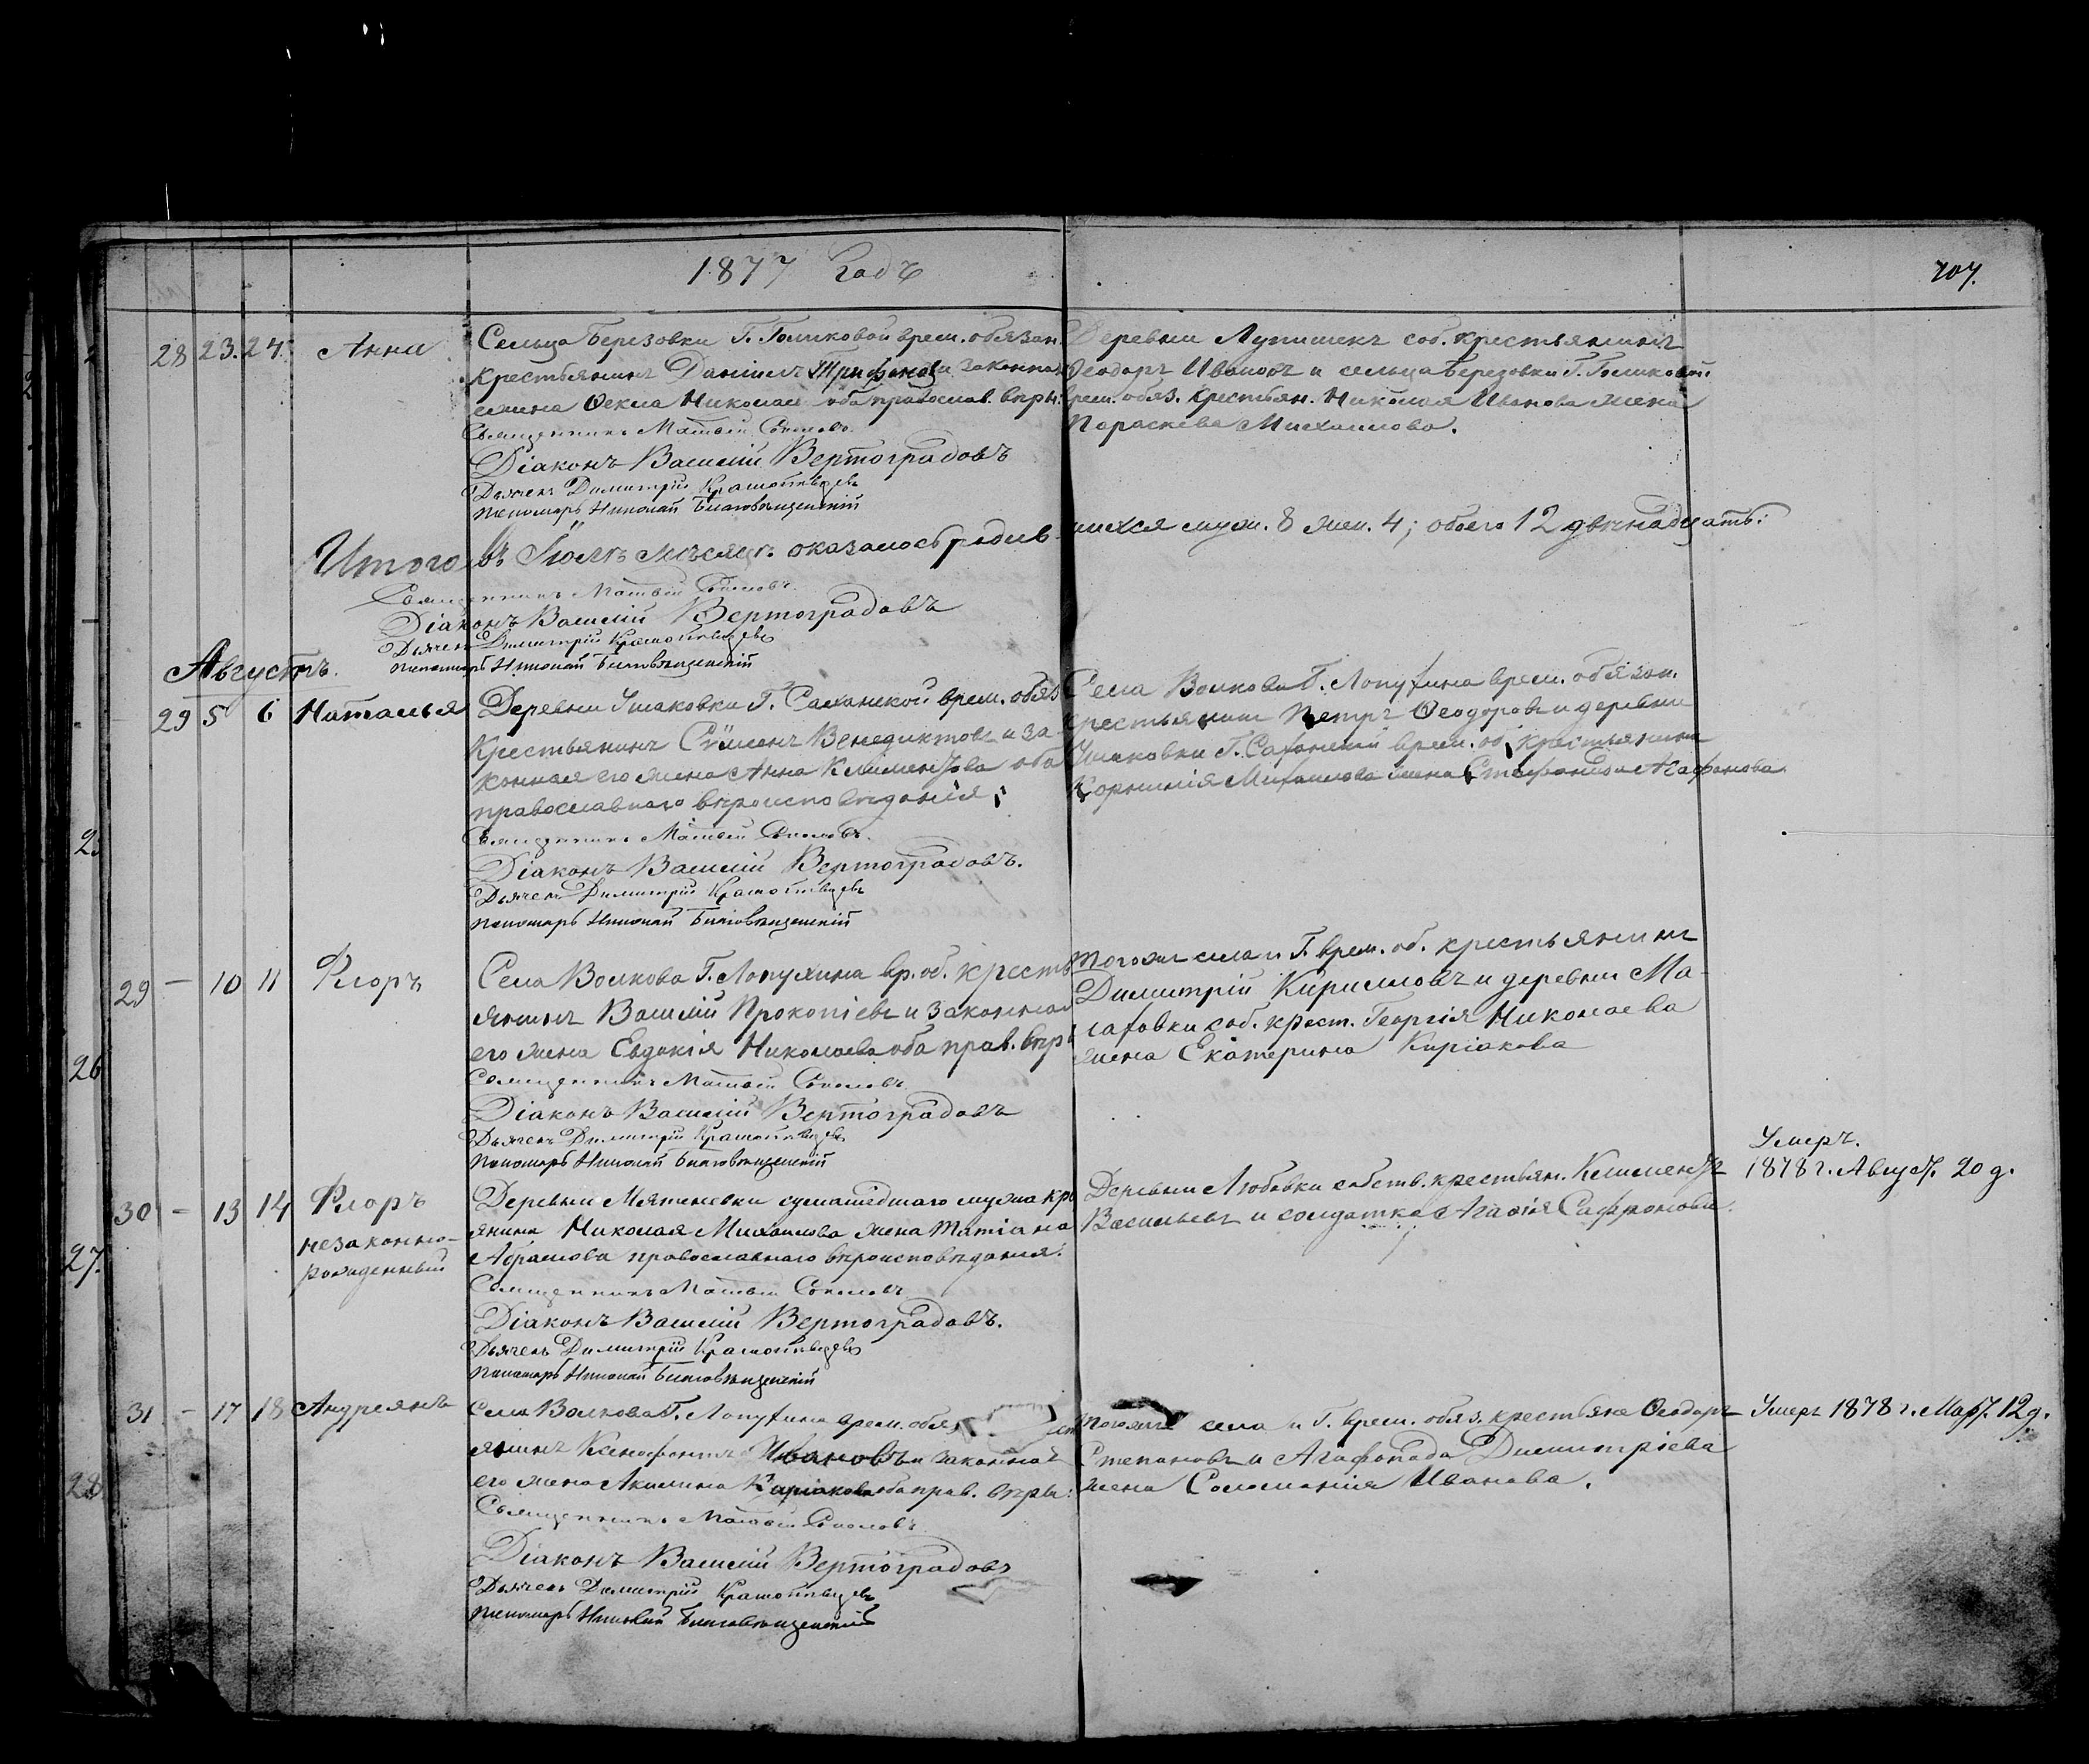 1877 Годъ
707.
28 23. 24. Анна
Сельца Березовки Г. Голиковой врем. обязан.
крестьянинъ Даніилъ Трифоновъ и законная
жена Ѳекла Николаева оба православ. вѣры.
Священникъ Матвей Соколовъ.
Діаконъ Василий Вертоградовъ
Дьячекъ Димитрій
Пономарь Николай Благовѣщенскій
Деревни Лупишекъ соб. крестьянинъ
Ѳеодоръ Ивановъ и сельца Березовки Г. Голиковой
врем. обяз. крестьян. Николая Иванова жена
Параскева Михаилова.
Итого въ Іюлѣ мѣсяцѣ оказалось родившихся муж. 8 жен. 4; обоего 12 двѣнадцать.
Священникъ Матвей Соколовъ.
Діаконъ Василій Вертоградовъ
Дьячекъ Димитрій
Пономарь Николай Благовѣщенскій
Августъ.
29 5 6 Наталья
Деревни Ушаковки Г. врем. обяз.
крестьянинъ Сѵмеонъ Венедиктовъ и за-
конная его жена Анна Климентова оба
православнаго вѣроисповѣданія.
Священникъ Матвей Соколовъ.
Діаконъ Василій Вертоградовъ.
Дьячекъ Димитрій
Пономарь Николай Благовѣщенскій
Села Волкова Г. Лопухина врем. обязан.
крестьянинъ Петръ Ѳеодоровъ и деревни
Ушаковки Г. врем. об. крестьянина
Корнилія Михаилова жена Стефанида Агафонова
29 - 10 11 Флоръ
Села Волкова Г. Лопухина вр. об. кресть-
янинъ Василій Прокопіевъ и законная
его жена Евдокія Николаева оба прав. вѣры
Священникъ Матвей Соколовъ
Діаконъ Василій Вертоградовъ
Дьячекъ Димитрій
Пономарь Николай Благовѣщенскій
Тогоже села и Г. врем. об. крестьянинъ
Димитрій Кирилловъ и деревни Ма-
лаховки соб. крест. Георгія Николаева
жена Екатерина Киріакова
30 - 13 14 Флоръ
незаконно-
рожденный
Деревни сумашедшаго мужа кре
янина Николая Михаилова жена Татіана
Абрамова православнаго вѣроисповѣданія.
Священникъ Матвей Соколовъ
Діаконъ Василій Вертоградовъ.
Дьячекъ Димитрій
Пономарь Николай Благовѣщенскій
Деревни Любавки собств. крестьян. Климентъ
Васильевъ и солдатка Агафія Сафронова.
Умеръ.
1878 г. Август. 20 д.
31 - 17 18 Андреянъ
Села Волкова Г. Лопухина врем. обяз.
янинъ Ксенофонтъ Ивановъ и законная
его жена Акилина Киріакова оба прав. вѣры:
Священникъ Матвей Соколовъ
Діаконъ Василій Вертоградовъ
Дьячекъ Димитрій
Пономарь Николай Благовѣщенскій
Тогоже села и Г. врем. обяз. крестьяне Ѳеодоръ
Степановъ и Агафопода Димитріева
жена Соломанія Иванова.
Умеръ 1878 г. Март. 12 д.
25
26
27.
28